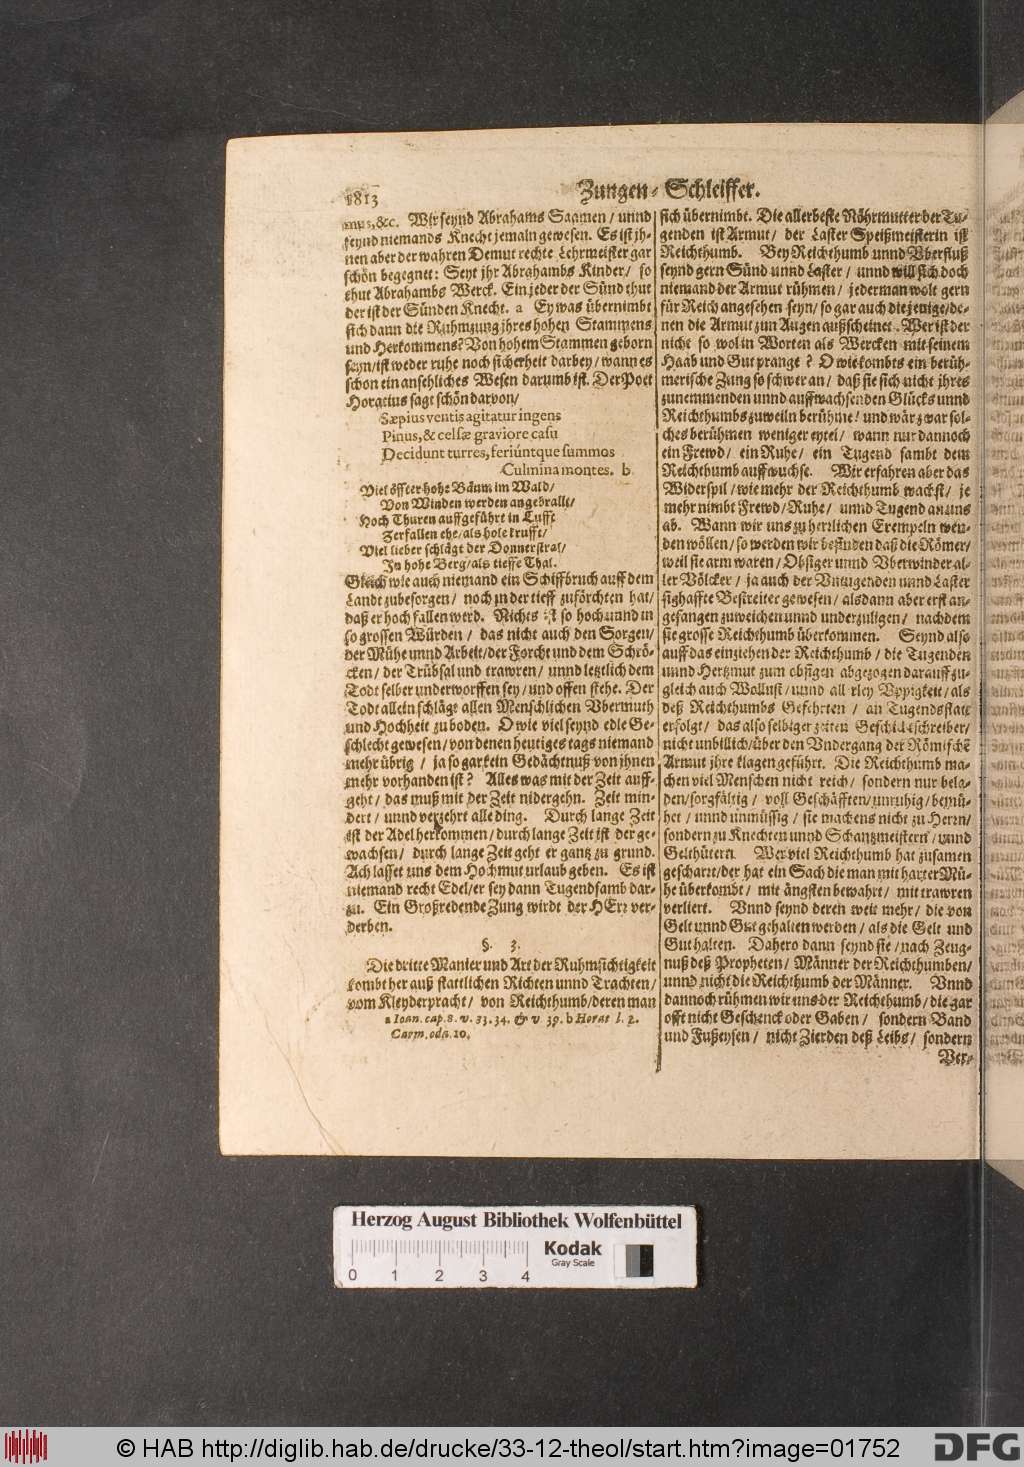 1813
Zungen-Schleiffer.
mus, &c. Wir seynd Abrahams Saamen / unnd
seynd niemands Knecht jemaln gewesen. Es ist jh-
nen aber der wahren Demut rechte Lehrmeister gar
schön begegnet: Seyt jhr Abrahambs Kinder / so
thut Abrahambs Werck. Ein jeder der Sünd thut
der ist der Sünden Knecht. a Ey was übernimbt
sich dann die Ruhmzung jhres hohen Stammens
und Herkommens? Von hohem Stammen geborn
seyn / ist weder ruhe noch sicherheit darbey / wann es
schon ein ansehliches Wesen darumb ist. Der Poet
Horatius sagt schön darvon /
Sæpius ventis agitatur ingens
Pinus, & celsæ graviore casu
Decidunt turres, feriúntque summos
Culmina montes. b
Viel öffter hohe Bäum im Wald /
Von Winden werden angebrallt /
Hoch Thuren auffgeführt in Lufft
Zerfallen ehe / als hole krufft /
Viel lieber schlägt der Donnerstral /
In hohe Berg / als tieffe Thal.
Gleich wie auch niemand ein Schiffbruch auff dem
Landt zubesorgen / noch in der tieff zuförchten hat /
daß er hoch fallen werd. Nichts ist so hoch unnd in
so grossen Würden / das nicht auch den Sorgen /
der Mühe unnd Arbeit / der Forcht und dem Schrö-
cken / der Trübsal und trawren / unnd letzlich dem
Todt selber underworffen sey / und offen stehe. Der
Todt allein schlägt allen Menschlichen Ubermuth
und Hochheit zu boden. O wie viel seynd edle Ge-
schlecht gewesen / von denen heutiges tags niemand
mehr übrig / ja so gar kein Gedächtnuß von jhnen
mehr vorhanden ist? Alles was mit der Zeit auff-
geht / das muß mit der Zeit nidergehn. Zeit min-
dert / unnd verzehrt alle ding. Durch lange Zeit
ist der Adel herkommen / durch lange Zeit ist der ge-
wachsen / durch lange Zeit geht er gantz zu grund.
Ach lasset uns dem Hochmut urlaub geben. Es ist
niemand recht Edel / er sey dann Tugendsamb dar-
zu. Ein Großredende Zung wirdt der HErr ver-
derben.
§. 3.
Die dritte Manier und Art der Ruhmsichtigkeit
kombt her auß stattlichen Richten unnd Trachten /
vom Kleyderpracht / von Reichthumb / deren man
a Ioan. cap. 8. v. 33. 34. & v. 39. b Horat l. 2.
Carm. oda. 10.
sich übernimbt. Die allerbeste Nöhrmutter der Tu-
genden ist Armut / der Laster Speißmeisterin ist
Reichthumb. Bey Reichthumb unnd Uberfluß
seynd gern Sünd unnd Laster / unnd will sich doch
niemand der Armut rühmen / jederman wolt gern
für Reich angesehen seyn / so gar auch die jenige / de-
nen die Armut zun Augen außscheinet. Wer ist der
nicht so wol in Worten als Wercken mit seinem
Haab und Gut prange? O wie kombts ein berüh-
merische Zung so schwer an / daß sie sich nicht jhres
zunemmenden unnd auffwachsenden Glücks unnd
Reichthumbs zuweiln berühme! und wär zwar sol-
ches berühmen weniger eytel / wann nur dannoch
ein Frewd / ein Ruhe / ein Tugend sambt dem
Reichthumb auffwuchse. Wir erfahren aber das
Widerspil / wie mehr der Reichthumb wachst / je
mehr nimbt Frewd / Ruhe / unnd Tugend an uns
ab. Wann wir uns zu herrlichen Exempeln wen-
den wöllen / so werden wir befinden daß die Römer /
weil sie arm waren / Obsiger unnd Uberwinder al-
ler Völcker / ja auch der Untugenden unnd Laster
sighaffte Bestreiter gewesen / alsdann aber erst an-
gefangen zuweichen unnd underzuligen / nachdem
sie grosse Reichthumb überkommen. Seynd also
auff das einziehen der Reichthumb / die Tugenden
unnd Hertzmut zum obsigen abgezogen darauff zu-
gleich auch Wollust / unnd allerley Uppigkeit / als
deß Reichthumbs Gefehrten / an Tugendsstatt
erfolgt / das also selbiger zeiten Geschichtschreiber /
nicht unbillich / über den Undergang der Römischẽ
Armut jhre klagen geführt. Die Reichthumb ma-
chen viel Menschen nicht reich / sondern nur bela-
den / sorgfältig / voll Geschäfften / unruhig / bemü-
het / unnd unmüssig / sie machens nicht zu Herrn /
sondern zu Knechten unnd Schantzmeistern / unnd
Gelthütern. Wer viel Reichthumb hat zusamen
gescharrt / der hat ein Sach die man mit harter Mü-
he überkombt / mit ängsten bewahrt / mit trawren
verliert. Unnd seynd deren weit mehr / die von
Gelt unnd Gut gehalten werden / als die Gelt und
Gut halten. Dahero dann seynd sie / nach Zeug-
nuß deß Propheten / Männer der Reichthumben /
unnd nicht die Reichthumb der Männer. Unnd
dannoch rühmen wir uns der Reichthumb / die gar
offt nicht Geschenck oder Gaben / sondern Band
und Fußeysen / nicht Zierden deß Leibs / sondern
Ver-
Herzog August Bibliothek Wolfenbüttel
Kodak
Gray Scale
0 1 2 3 4
© HAB http://diglib.hab.de/drucke/33-12-theol/start.htm?image=01752
DFG